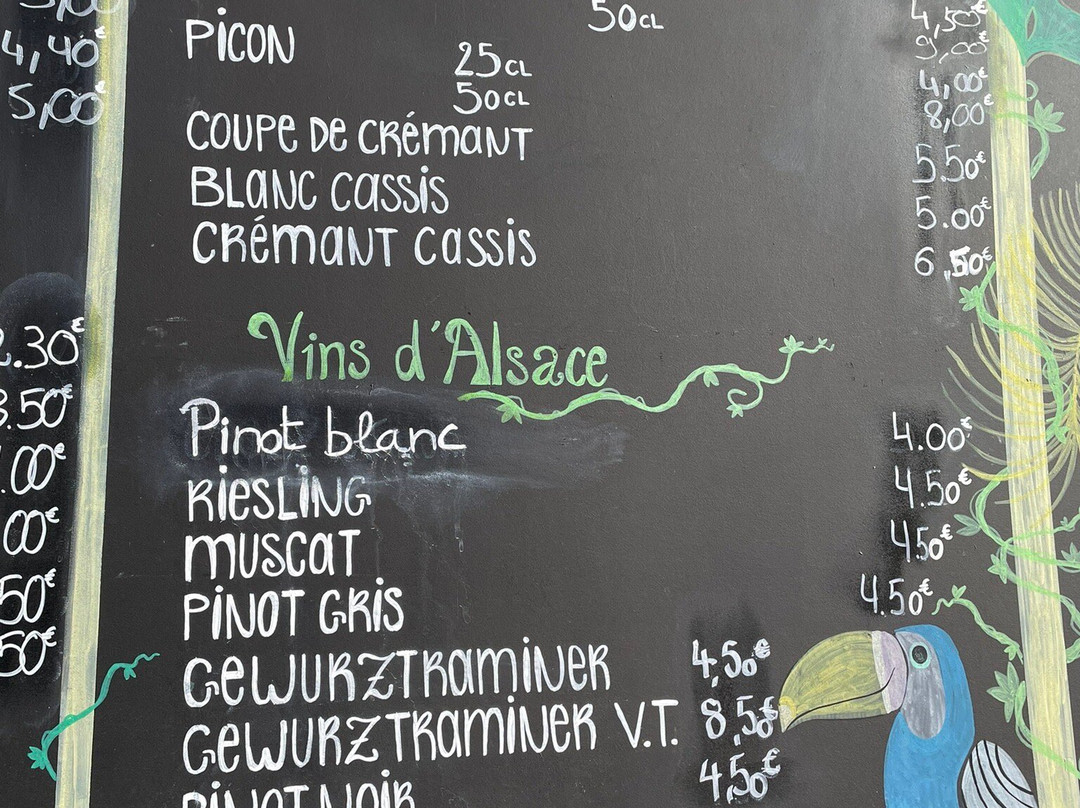 50CL 4,50€
PICON 9,00€
25CL 4,00€
50CL 8,00€
COUPE DE CRÉMANT 5.50€
BLANC CASSIS 5.00€
CRÉMANT CASSIS 6,50€
4,40€
5,00€
Vins d'Alsace
Pinot blanc 4.00€
RIESLING 4.50€
MUSCAT 4.50€
PINOT GRIS 4.50€
GEWURZTRAMINER 4,50€
GEWURZTRAMINER V.T. 8,50€
PINOT NOIR 4,50€
2.30€
3.50€
.00€
00€
50€
50€